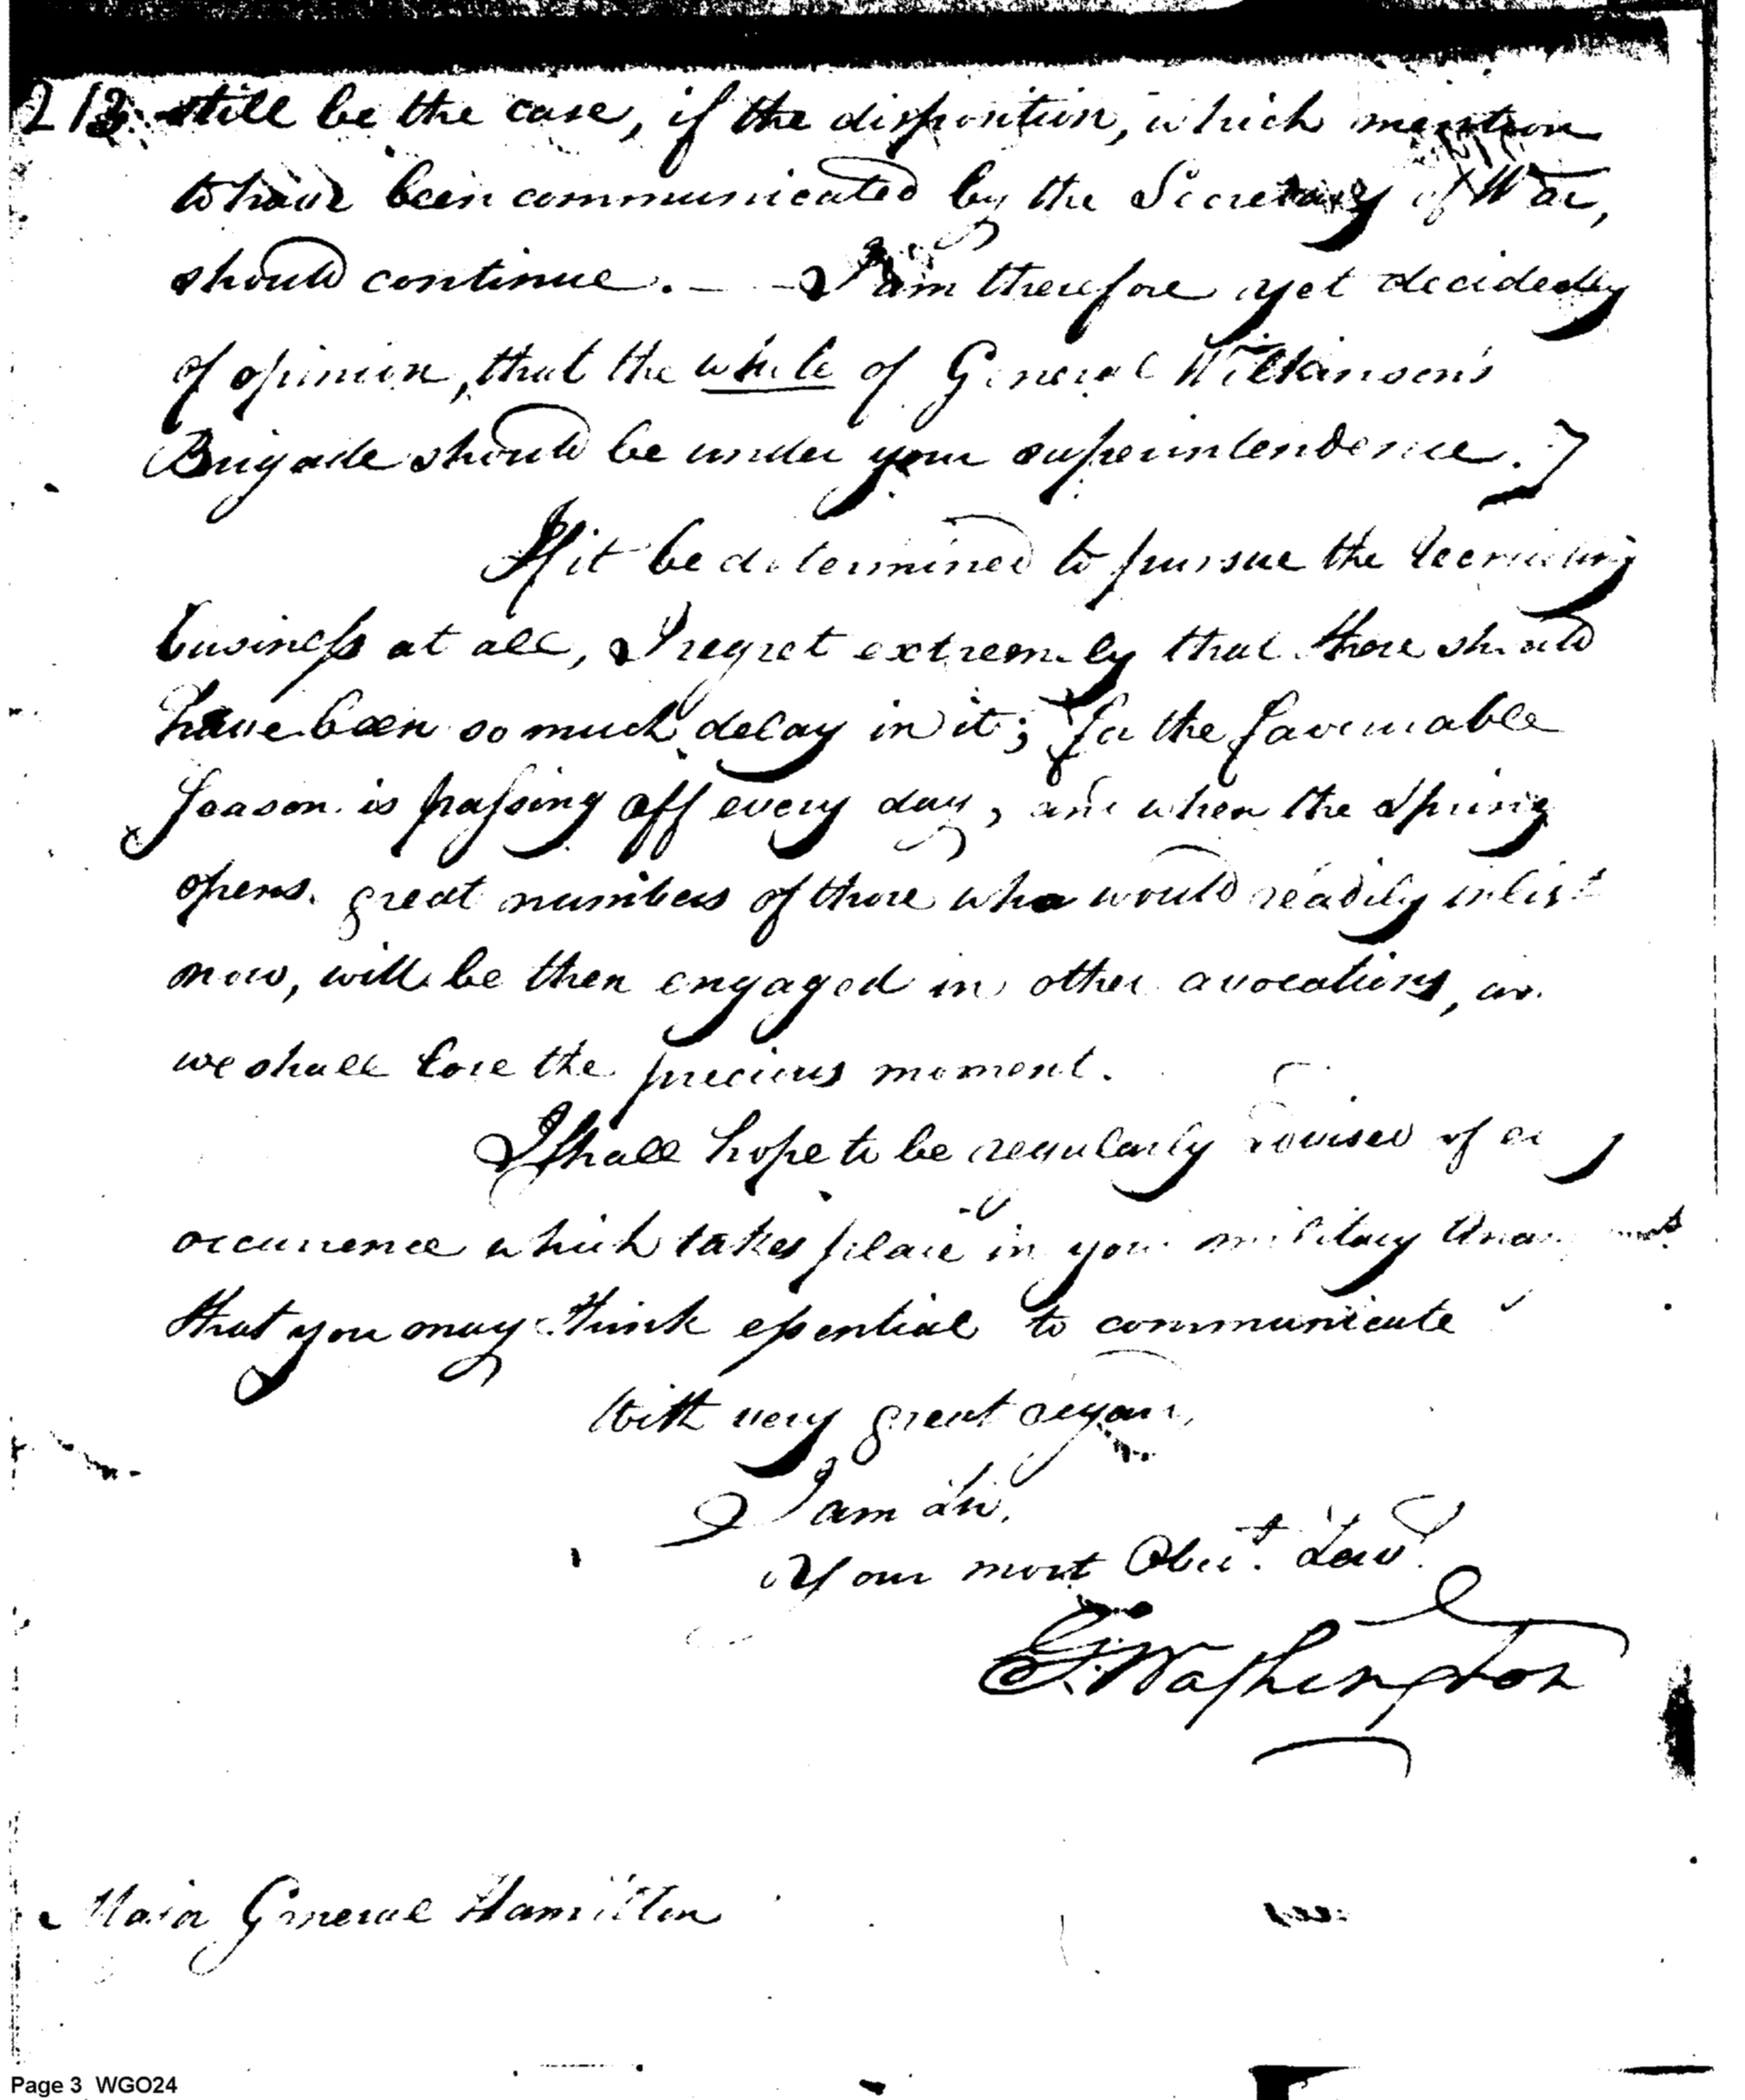 213. still be the case, if the disposition, which mention
to have been communicated by the Secretary of War,
should continue. — I am therefore yet decidedly
of opinion, that the whole of General Wilkinson's
Brigade should be under your superintendence.]
If it be determined to pursue the recruiting
business at all, I regret extremely that there should
have been so much delay in it; for the favourable
Season is passing off every day, and when the Spring
opens. great numbers of those who would readily inlist
now, will be then engaged in other avocations, an
we shall lose the precious moment.
I shall hope to be regularly advised of
occurrence which takes place in your military
that you may think essential to communicate
With very great regard,
I am Sir,
Your most Obedt. Servt.
G. Washington
Major General Hamilton
Page 3 WGO24